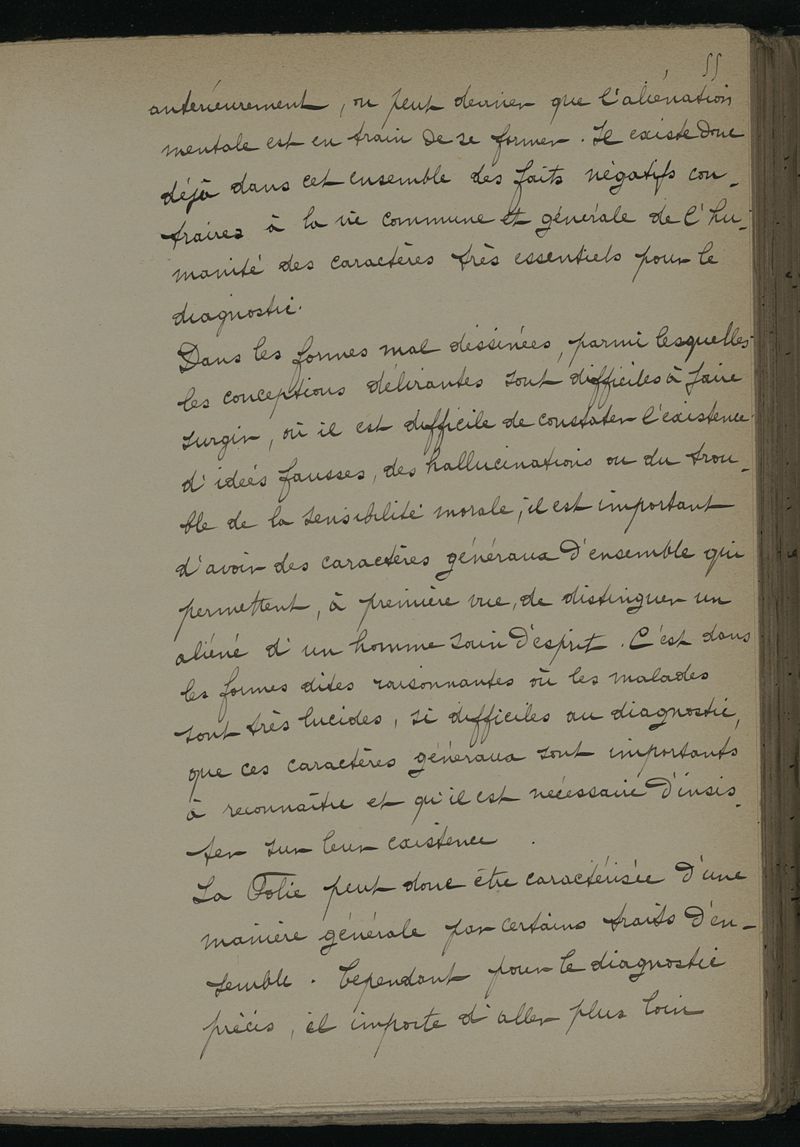 55
antérieurement, on peut deviner que l'aliénation
mentale est en train de se former. Il existe donc
déjà dans cet ensemble des faits négatifs con-
traires à la vie commune et générale de l'hu-
manité des caractères très essentiels pour le
diagnostic.
Dans les formes mal dessinées, parmi lesquelles
les conceptions délirantes sont difficiles à faire
surgir, où il est difficile de constater l'existence
d'idées fausses, des hallucinations ou du trou-
ble de la sensibilité morale; il est important
d'avoir des caractères généraux d'ensemble qui
permettent, à première vue, de distinguer un
aliéné d'un homme sain d'esprit. C'est dans
les formes dites raisonnantes où les malades
sont très lucides, si difficiles au diagnostic,
que ces caractères généraux sont importants
à reconnaître et qu'il est nécessaire d'insis-
ter sur leur existence.
La Folie peut donc être caractérisée d'une
manière générale par certains traits d'en-
semble. Cependant pour le diagnostic
précis, il importe d'aller plus loin